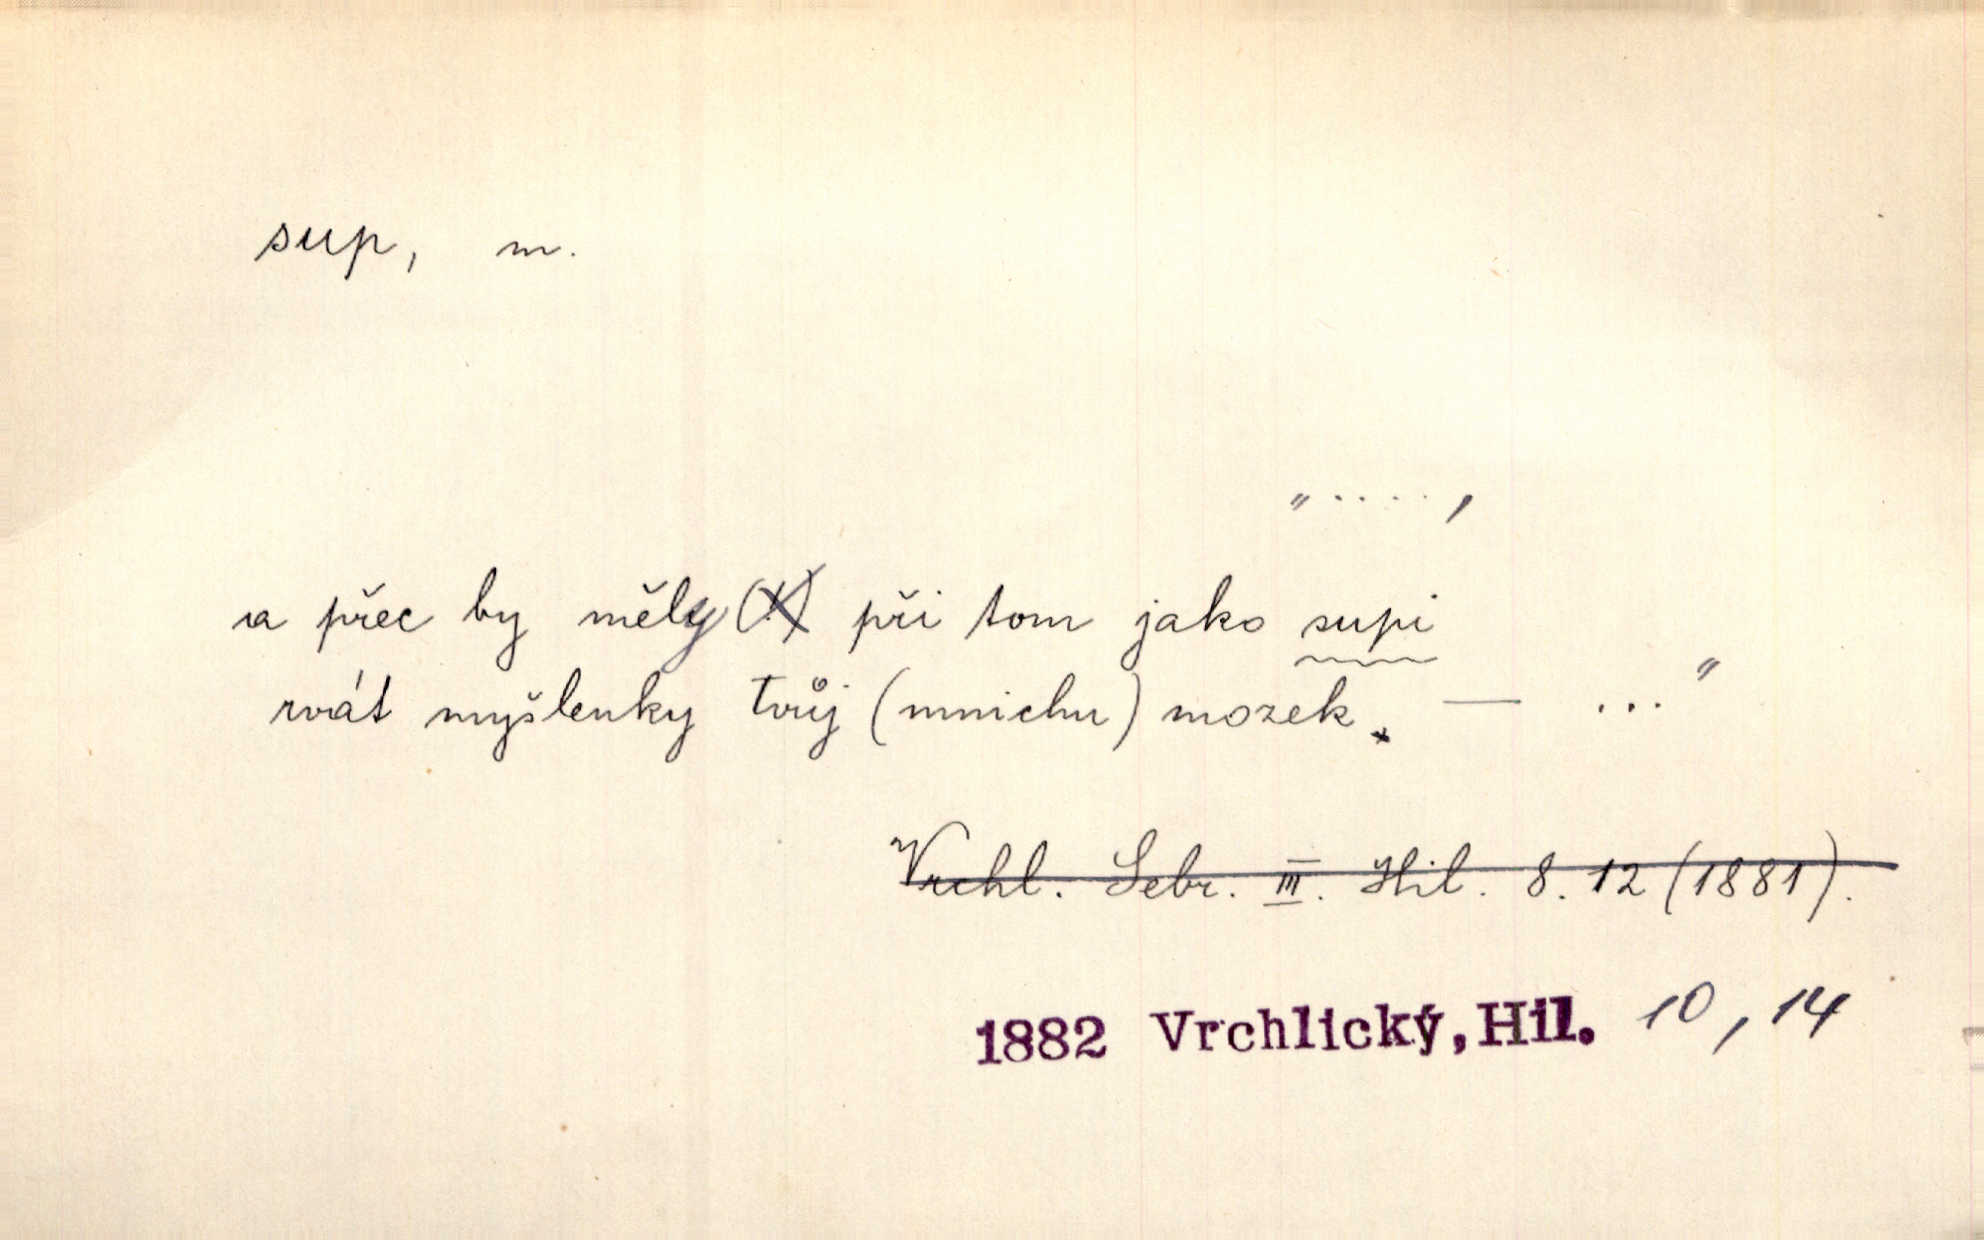 sup, m.
„ . . . . . ,
a přec by měly při tom jako supi
rvát myšlenky tvůj (mnichu) mozek. — ..."
Vrchl. Sebr. III. Hil. 8. 12 (1881).
1882 Vrchlický, Hil. 10, 14